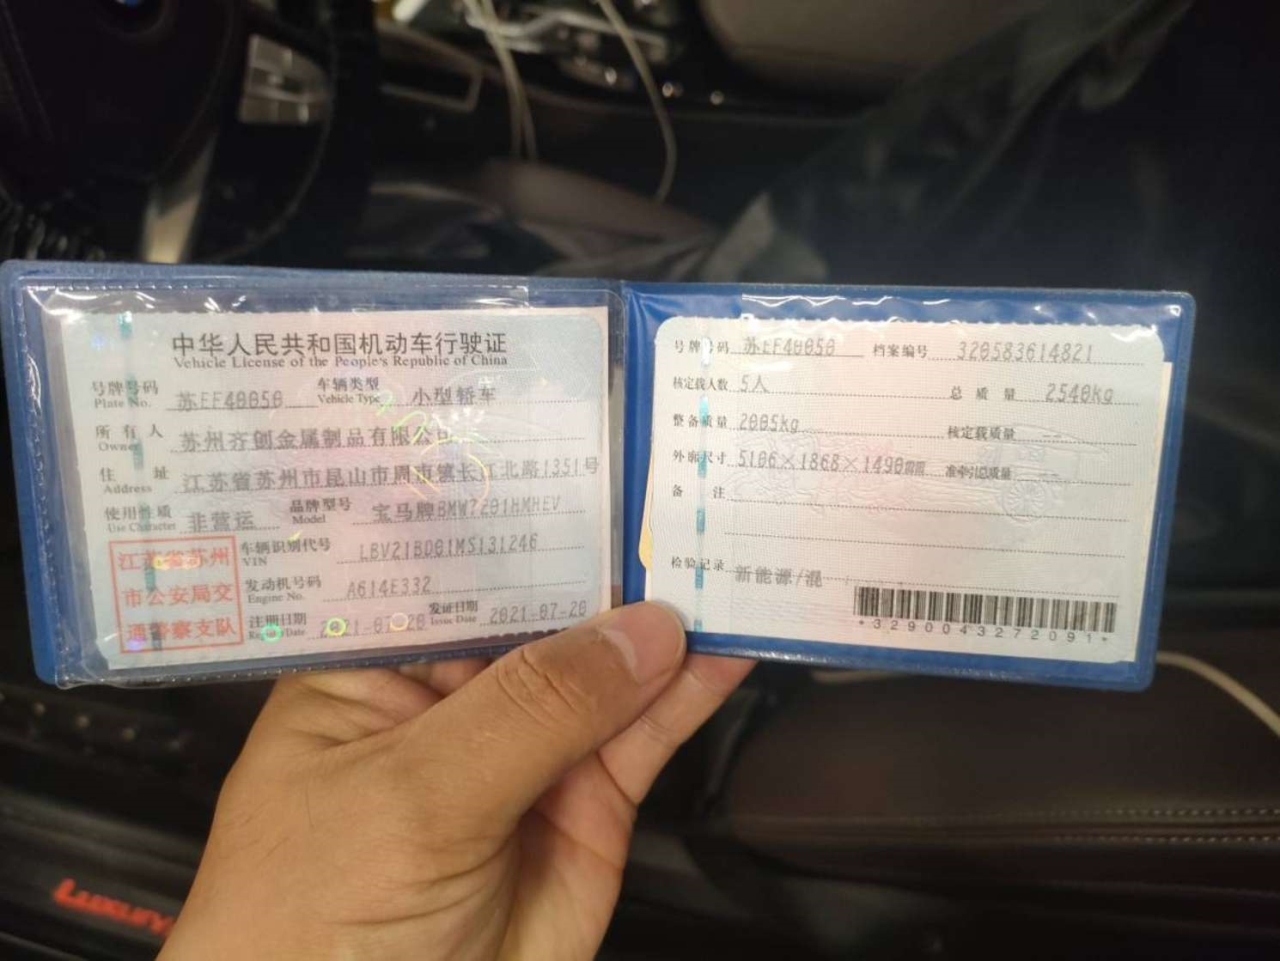 中华人民共和国机动车行驶证
Vehicle License of the People's Republic of China
号牌号码 苏EF40050 车辆类型 小型轿车
Plate No. Vehicle Type
所有人 苏州齐创金属制品有限公司
Owner
住址 江苏省苏州市昆山市周市镇长江北路1351号
Address
使用性质 非营运 品牌型号 宝马牌BMW7201HMHEV
Use Character Model
江苏省苏州
市公安局交
通警察支队
车辆识别代号 LBV21BD01MS131246
VIN
发动机号码 A614E332
Engine No.
注册日期 2021-07-20 发证日期 2021-07-20
Register Date Issue Date
号牌号码 苏EF40050 档案编号 320583614821
核定载人数 5人 总质量 2540kg
整备质量 2005kg 核定载质量 --
外廓尺寸 5106×1868×1490mm 准牵引总质量 --
备注
检验记录 新能源/混
*3290043272091*
Luxury